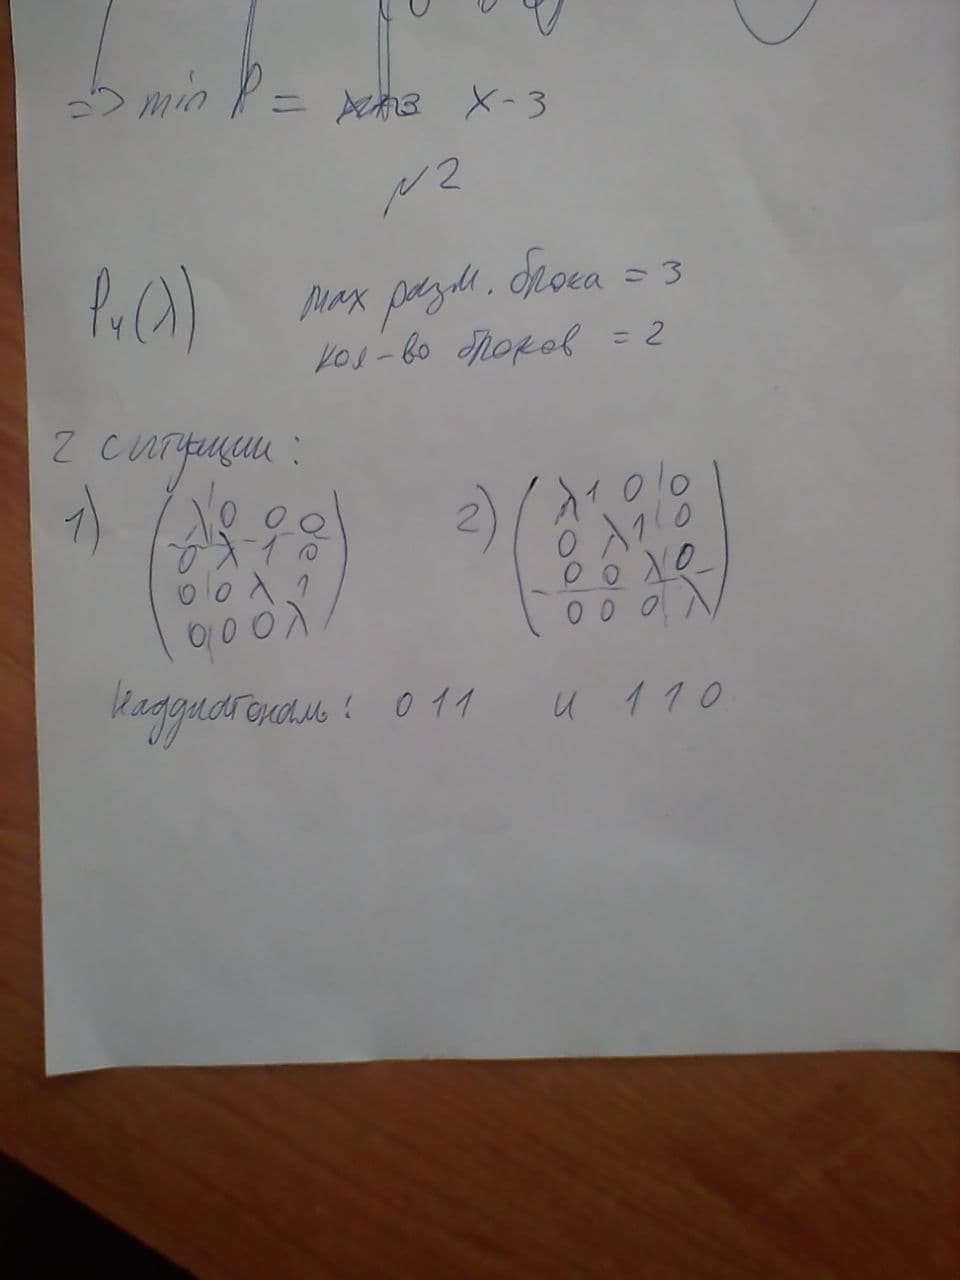 => min P = x-3
№2
P₄(λ) max разм. блока = 3
кол-во блоков = 2
2 ситуации:
1) 2)
λ 0 0 0 λ 1 0 0
0 λ 1 0 0 λ 1 0
0 0 λ 1 0 0 λ 0
0 0 0 λ 0 0 0 λ
Наддиагональ: 0 1 1 и 1 1 0